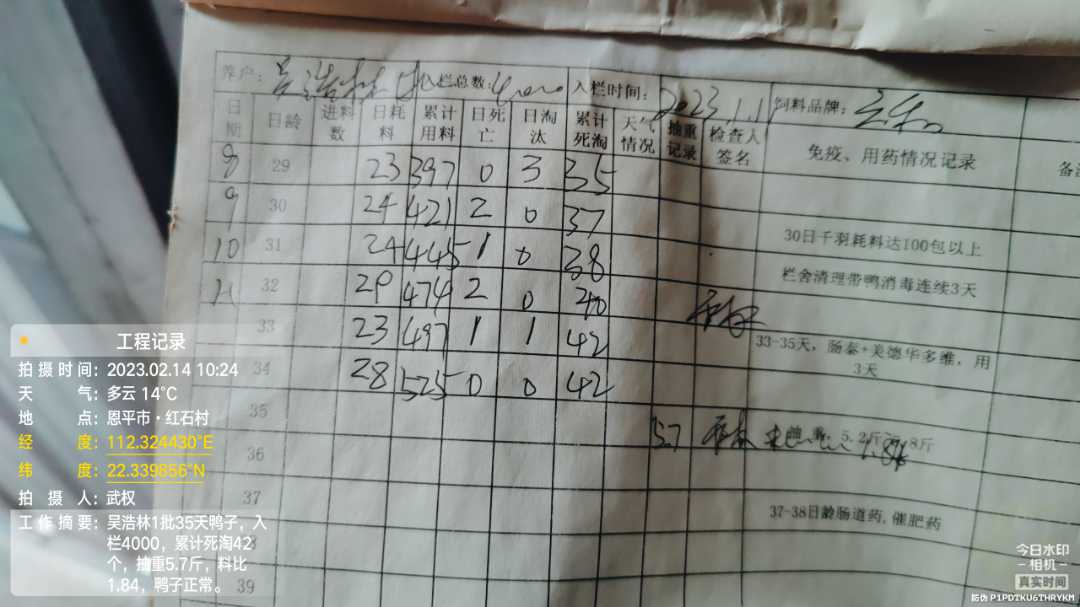 养户: 吴浩林 入栏总数: 4000 入栏时间: 2023.1.11 饲料品牌:
日期 日龄 进料数 日耗料 累计用料 日死亡 日淘汰 累计死淘 天气情况 抽重记录 检查人签名 免疫、用药情况记录
8 29 23 397 0 3 35
9 30 24 421 2 0 37 30日千羽耗料达100包以上
10 31 24 445 1 0 38 栏舍清理带鸭消毒连续3天
11 32 29 474 2 0 40
33 23 497 1 1 42 33-35天,肠泰+美德华多维,用3天
34 28 525 0 0 42
35
36 5.7 抽重 5.2斤 8斤 1.84
37 37-38日龄肠道药,催肥药
39
工程记录
拍摄时间: 2023.02.14 10:24
天气: 多云 14℃
地点: 恩平市·红石村
经度: 112.324430°E
纬度: 22.339856°N
拍摄人: 武权
工作摘要: 吴浩林1批35天鸭子,入
栏4000,累计死淘42
个,抽重5.7斤,料比
1.84,鸭子正常。
今日水印
-相机-
真实时间
防伪 P1PDTKU6THRYKM